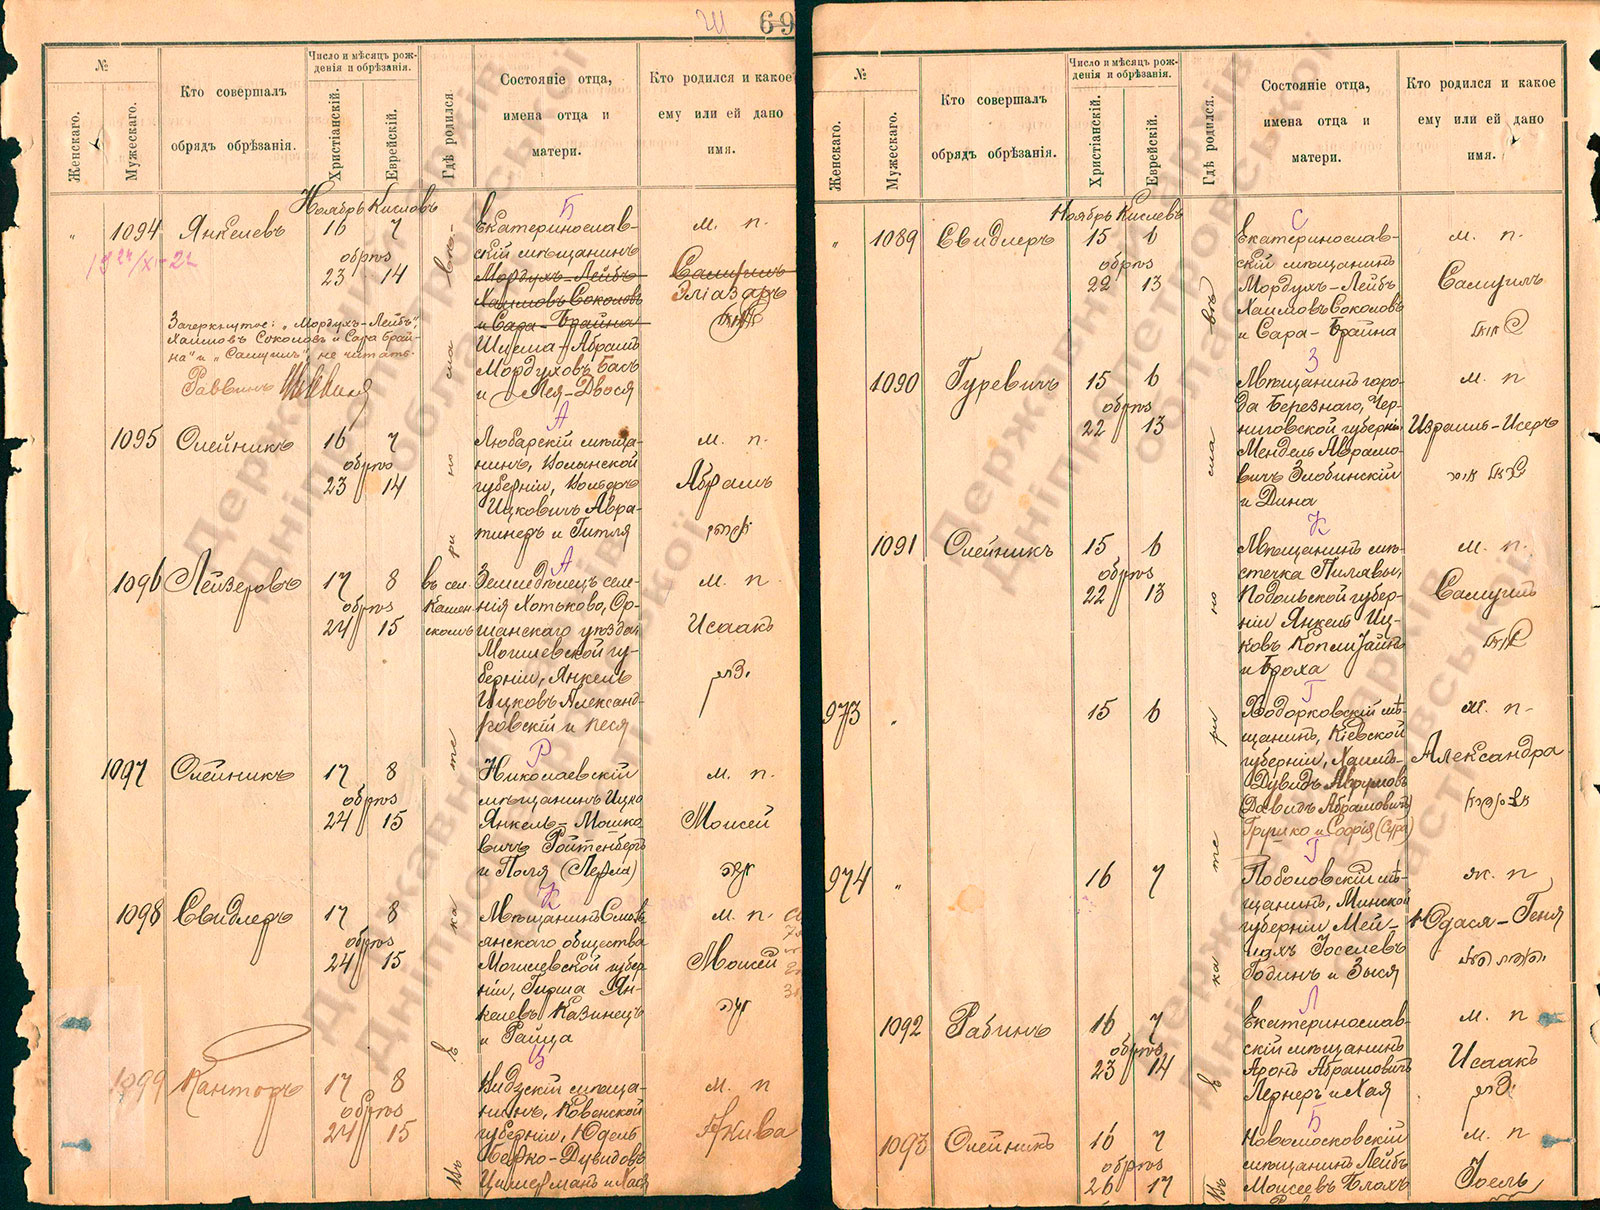 Ш 69
№
Женскаго.
Мужескаго.
Кто совершалъ
обрядъ обрѣзанія.
Число и мѣсяцъ рож-
денія и обрѣзанія.
Христіанскій.
Еврейскій.
Гдѣ родился.
Состояніе отца,
имена отца и
матери.
Кто родился и какое
ему или ей дано
имя.
Ноябрь Кислевъ
въ Екатеринославѣ
Б
" 1094 Янкелевъ 16 7
обрѣз
23 14
Екатеринослав-
скій мѣщанинъ
Мордухъ-Лейбъ
Хаимовъ Соколовъ
и Сара-Брайна
Шлема-Абрамъ
Мордуховъ Басъ
и Лея-Двося
м. п.
Самуилъ
Эліазаръ
Зачеркнутое: „Мордухъ-Лейбъ",
Хаимовъ Соколовъ и Сара Брай-
на" и „Самуилъ", не читать.
Раввинъ
А
1095 Олейникъ 16 7
обрѣз
23 14
Любарскій мѣща-
нинъ, Волынской
губерніи, Вольфъ
Ицковичъ Авра-
тинеръ и Гитля
м. п.
Абрамъ
А
1096 Лейзеровъ 17 8
обрѣз
24 15
въ сел.
Камен-
скомъ
Земледѣлецъ селе-
нія Хотьково, Ор-
шанскаго уѣзда,
Могилевской гу-
берніи, Янкель
Ицковъ Александ-
ровскій и Песя
м. п.
Исаакъ
Р
1097 Олейникъ 17 8
обрѣз
24 15
Николаевскій
мѣщанинъ Ицко
Янкель-Мошко-
вичъ Ройтенбергъ
и Поля (Перла)
м. п.
Моисей
К
1098 Свидлеръ 17 8
обрѣз
24 15
Мѣщанинъ
анскаго общества
Могилевской губер-
ніи, Гирша Ян-
келевъ Казинецъ
и Райца
м. п.
Моисей
Ц
1099 Канторъ 17 8
обрѣз
24 15
Видзскій мѣща-
нинъ, Ковенской
губерніи, Юдель
Берко-Дувидовъ
Цимерманъ и Хася
м. п
Акива
№
Женскаго.
Мужескаго.
Кто совершалъ
обрядъ обрѣзанія.
Число и мѣсяцъ рож-
денія и обрѣзанія.
Христіанскій.
Еврейскій.
Гдѣ родился.
Состояніе отца,
имена отца и
матери.
Кто родился и какое
ему или ей дано
имя.
Ноябрь Кислевъ
въ Екатеринославѣ
С
" 1089 Свидлеръ 15 6
обрѣз
22 13
Екатеринослав-
скій мѣщанинъ
Мордухъ-Лейбъ
Хаимовъ Соколовъ
и Сара-Брайна
м. п.
Самуилъ
З
1090 Гуревичъ 15 6
обрѣз
22 13
Мѣщанинъ горо-
да Березнаго, Чер-
ниговской губерніи
Мендель Авramo-
вичъ Злобинскій
и Дина
м. п
Израиль-Исеръ
К
1091 Олейникъ 15 6
обрѣз
22 13
Мѣщанинъ мѣ-
стечка Пилявы,
Подольской губер-
ніи Янкель Иц-
ковъ
и Броха
м. п.
Самуилъ
Г
973 " 15 6
Ходорковскій мѣ-
щанинъ, Кіевской
губерніи, Хаимъ-
Дувидъ Аврумовъ
(Давидъ Абрамовичъ)
Грушко и Софія (Сура)
ж. п.
Александра
Г
974 " 16 7
Поболовскій мѣ-
щанинъ, Минской
губерніи Мей-
Іоселевъ
Годинъ и Зыся
ж. п
Юдася-Геня
Л
1092 Рабинъ 16 7
обрѣз
23 14
Екатеринослав-
скій мѣщанинъ
Аронъ Абрамовичъ
Лернеръ и Хая
м. п
Исаакъ
Б
1093 Олейникъ 16 7
обрѣз
26 17
Новомосковскій
мѣщанинъ Лейбъ
Моисеевъ Блохъ
м. п
Іоель
Державний архів
Дніпропетровської
області